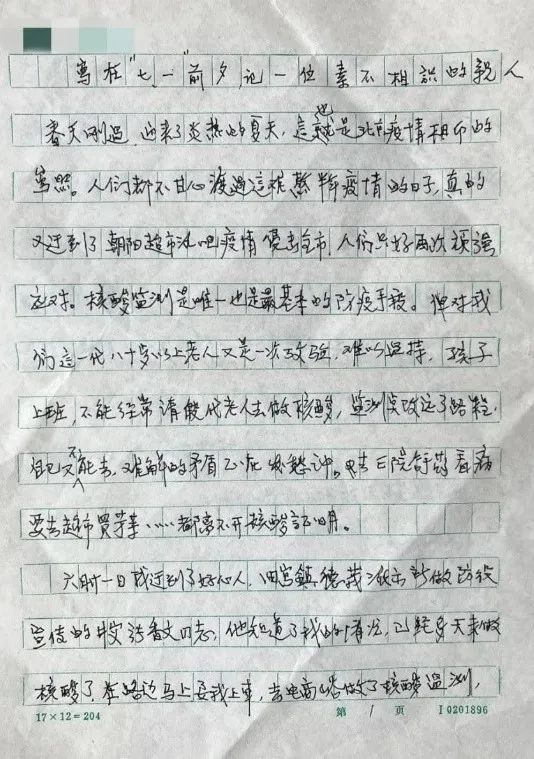 写在"七一"前夕,记一位素不相识的親人
春天刚過,迎来了炎热的夏天,這也就是北京疫情相印的
寫照。人们都不甘心渡過這種熬料疫情的日子,真的
又迂到了朝阳超市酒吧疫情侵击全市,人们只好再次顽强
应对。核酸监测是唯一也是最基本的防疫手段。但对我
们這一代八十岁以上老人又是一次攷验,难以堅持,孩子
上班,不能经常请假代老人去做核酸,监测点攷远了路程,
自已又不能去,难解的矛盾正在發愁中。要去医院舒药看病
要去超市買芽菜……都离不开核酸証明。
六时一日我迂到了好心人,鎮德茂做防役
宣传的文同志,他知道了我的情况,已经多天未做
核酸了,在路边马上要我上車,去电商做了核酸温测,
17×12=204
第 1 页
IQ201896